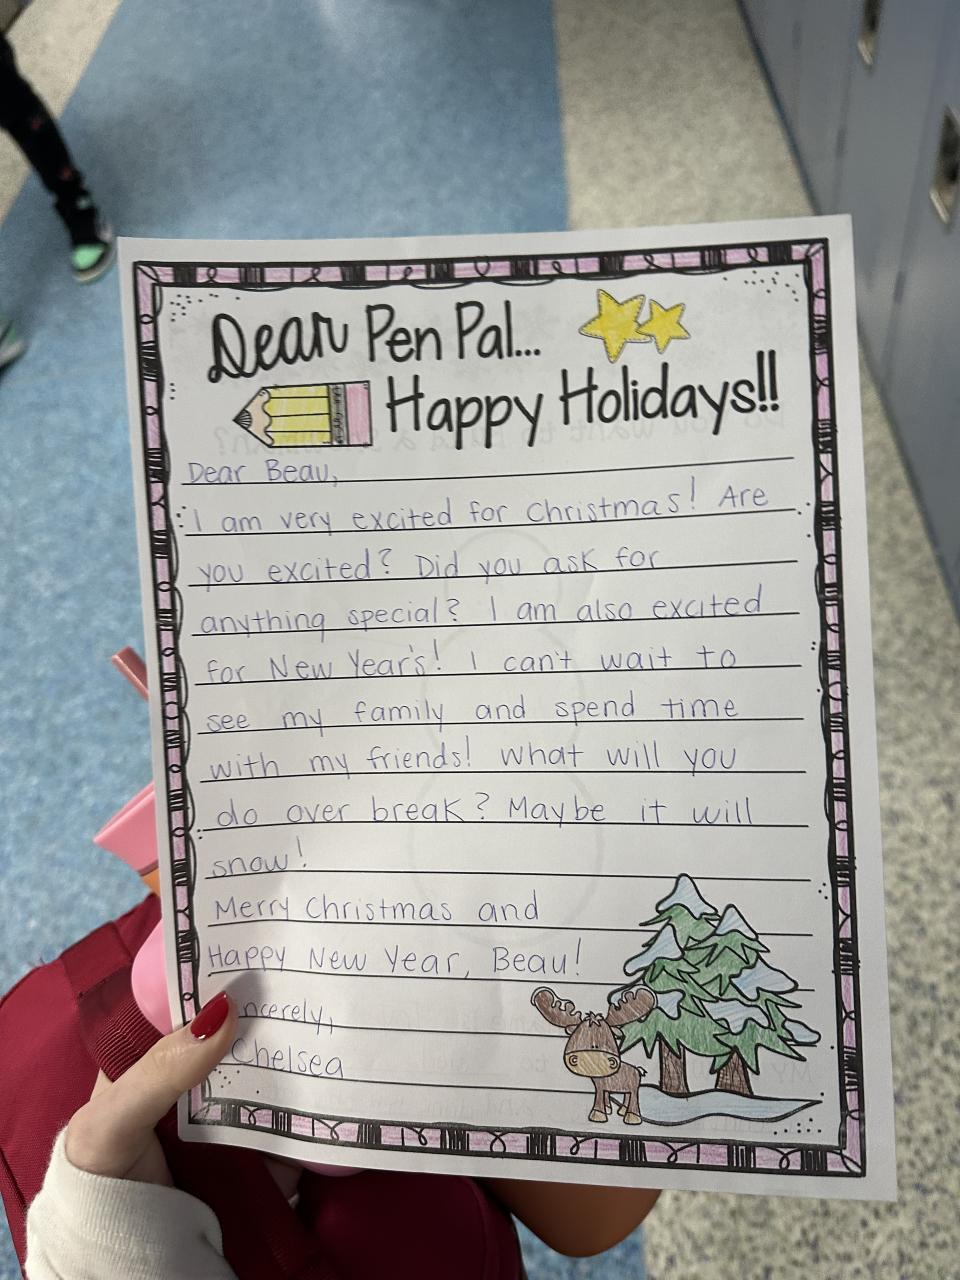 Dear Pen Pal...
Happy Holidays!!
Dear Beau,
I am very excited for Christmas! Are
you excited? Did you ask for
anything special? I am also excited
for New Year's! I can't wait to
see my family and spend time
with my friends! What will you
do over break? Maybe it will
snow!
Merry Christmas and
Happy New Year, Beau!
ncerely,
Chelsea